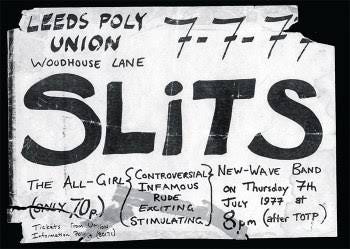 LEEDS POLY
UNION
WOODHOUSE LANE
7-7-77
SLiTS
THE ALL-GIRL
(ONLY 70p.)
Tickets from Union
CONTROVERSIAL
INFAMOUS
RUDE
EXCITING
STIMULATING.
NEW-WAVE BAND
on Thursday 7th
JULY 1977 at
8pm (after TOTP)